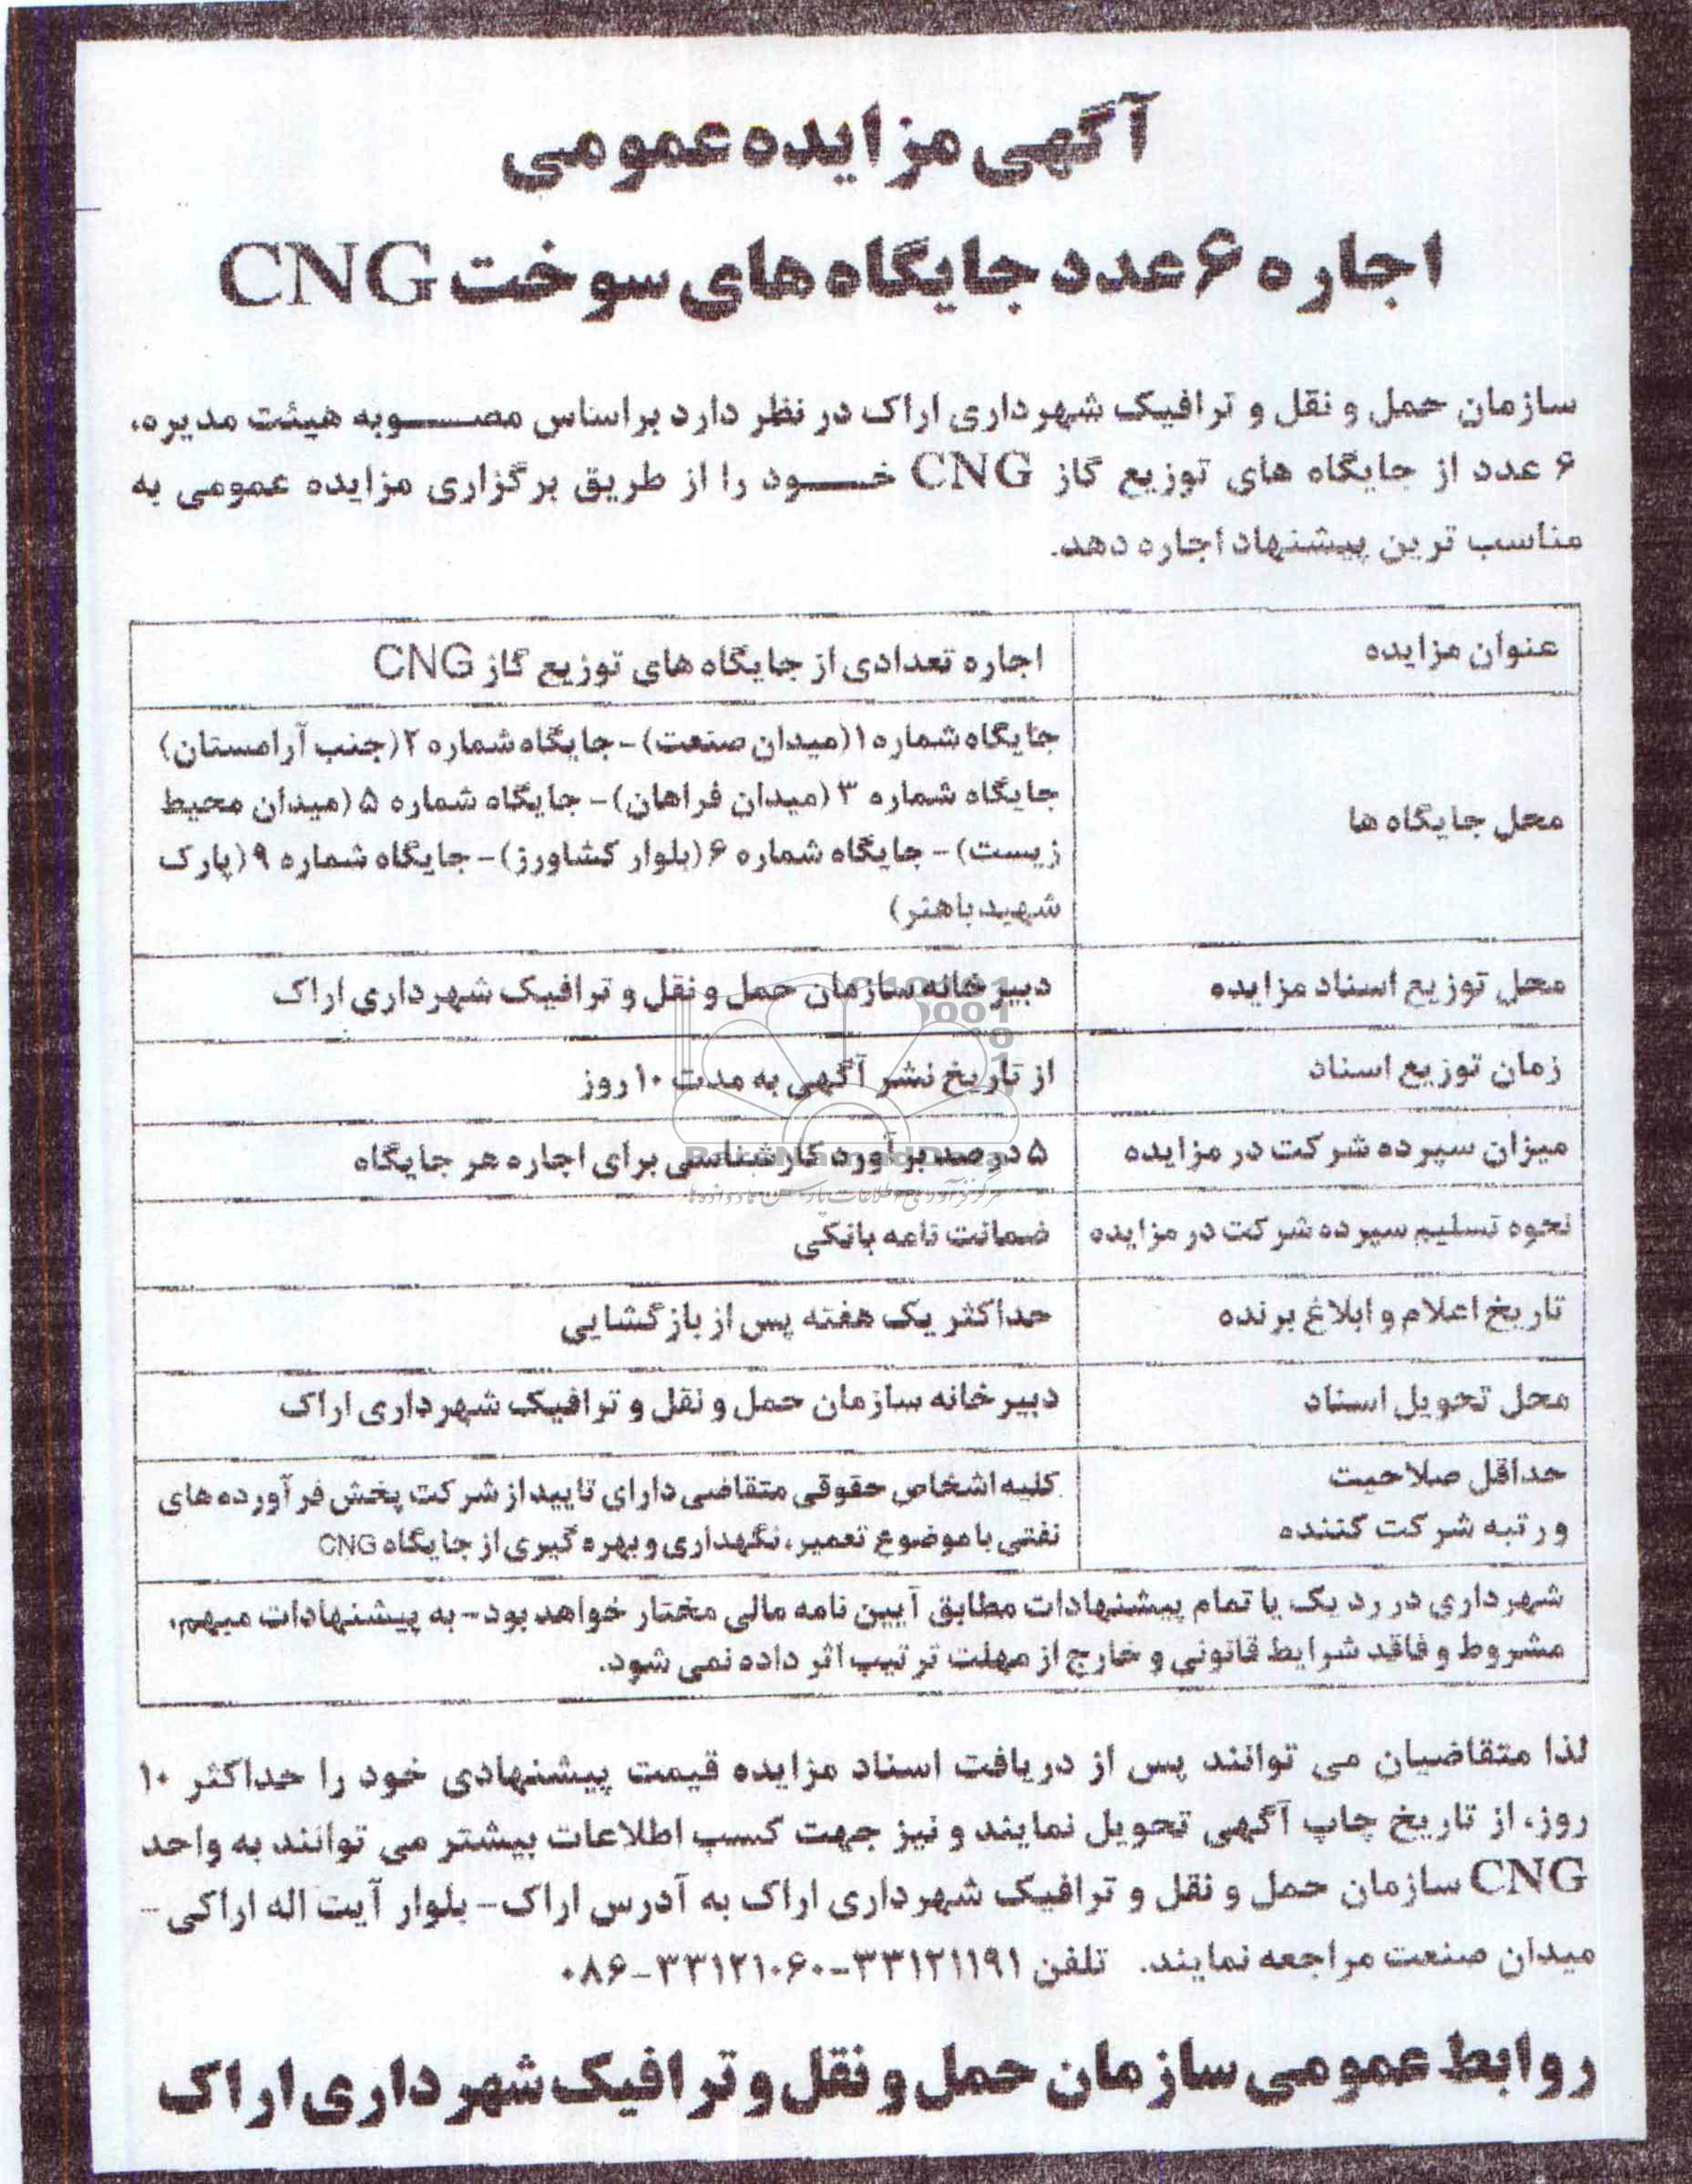 آگهی مزایده عمومی
اجاره ۶ عدد جایگاه های سوخت CNG
سازمان حمل و نقل و ترافیک شهرداری اراک در نظر دارد براساس مصوبه هیئت مدیره،
۶ عدد از جایگاه های توزیع گاز CNG خود را از طریق برگزاری مزایده عمومی به
مناسب ترین پیشنهاد اجاره دهد.
عنوان مزایده
اجاره تعدادی از جایگاه های توزیع گاز CNG
محل جایگاه ها
جایگاه شماره ۱ (میدان صنعت) - جایگاه شماره ۲ (جنب آرامستان)
جایگاه شماره ۳ (میدان فراهان) - جایگاه شماره ۵ (میدان محیط
زیست) - جایگاه شماره ۶ (بلوار کشاورز) - جایگاه شماره ۹ (پارک
شهید باهنر)
محل توزیع اسناد مزایده
دبیرخانه سازمان حمل و نقل و ترافیک شهرداری اراک
زمان توزیع اسناد
از تاریخ نشر آگهی به مدت ۱۰ روز
میزان سپرده شرکت در مزایده
۵ درصد برآورد کارشناسی برای اجاره هر جایگاه
نحوه تسلیم سپرده شرکت در مزایده
ضمانت نامه بانکی
تاریخ اعلام و ابلاغ برنده
حداکثر یک هفته پس از بازگشایی
محل تحویل اسناد
دبیرخانه سازمان حمل و نقل و ترافیک شهرداری اراک
حداقل صلاحیت
و رتبه شرکت کننده
کلیه اشخاص حقوقی متقاضی دارای تایید از شرکت پخش فرآورده های
نفتی با موضوع تعمیر، نگهداری و بهره گیری از جایگاه CNG
شهرداری در رد یک یا تمام پیشنهادات مطابق آیین نامه مالی مختار خواهد بود - به پیشنهادات مبهم،
مشروط و فاقد شرایط قانونی و خارج از مهلت ترتیب اثر داده نمی شود.
لذا متقاضیان می توانند پس از دریافت اسناد مزایده قیمت پیشنهادی خود را حداکثر ۱۰
روز، از تاریخ چاپ آگهی تحویل نمایند و نیز جهت کسب اطلاعات بیشتر می توانند به واحد
CNG سازمان حمل و نقل و ترافیک شهرداری اراک به آدرس اراک - بلوار آیت اله اراکی -
میدان صنعت مراجعه نمایند. تلفن ۳۳۱۲۱۱۹۱-۰۸۶-۳۳۱۲۱۰۶۰
روابط عمومی سازمان حمل و نقل و ترافیک شهرداری اراک